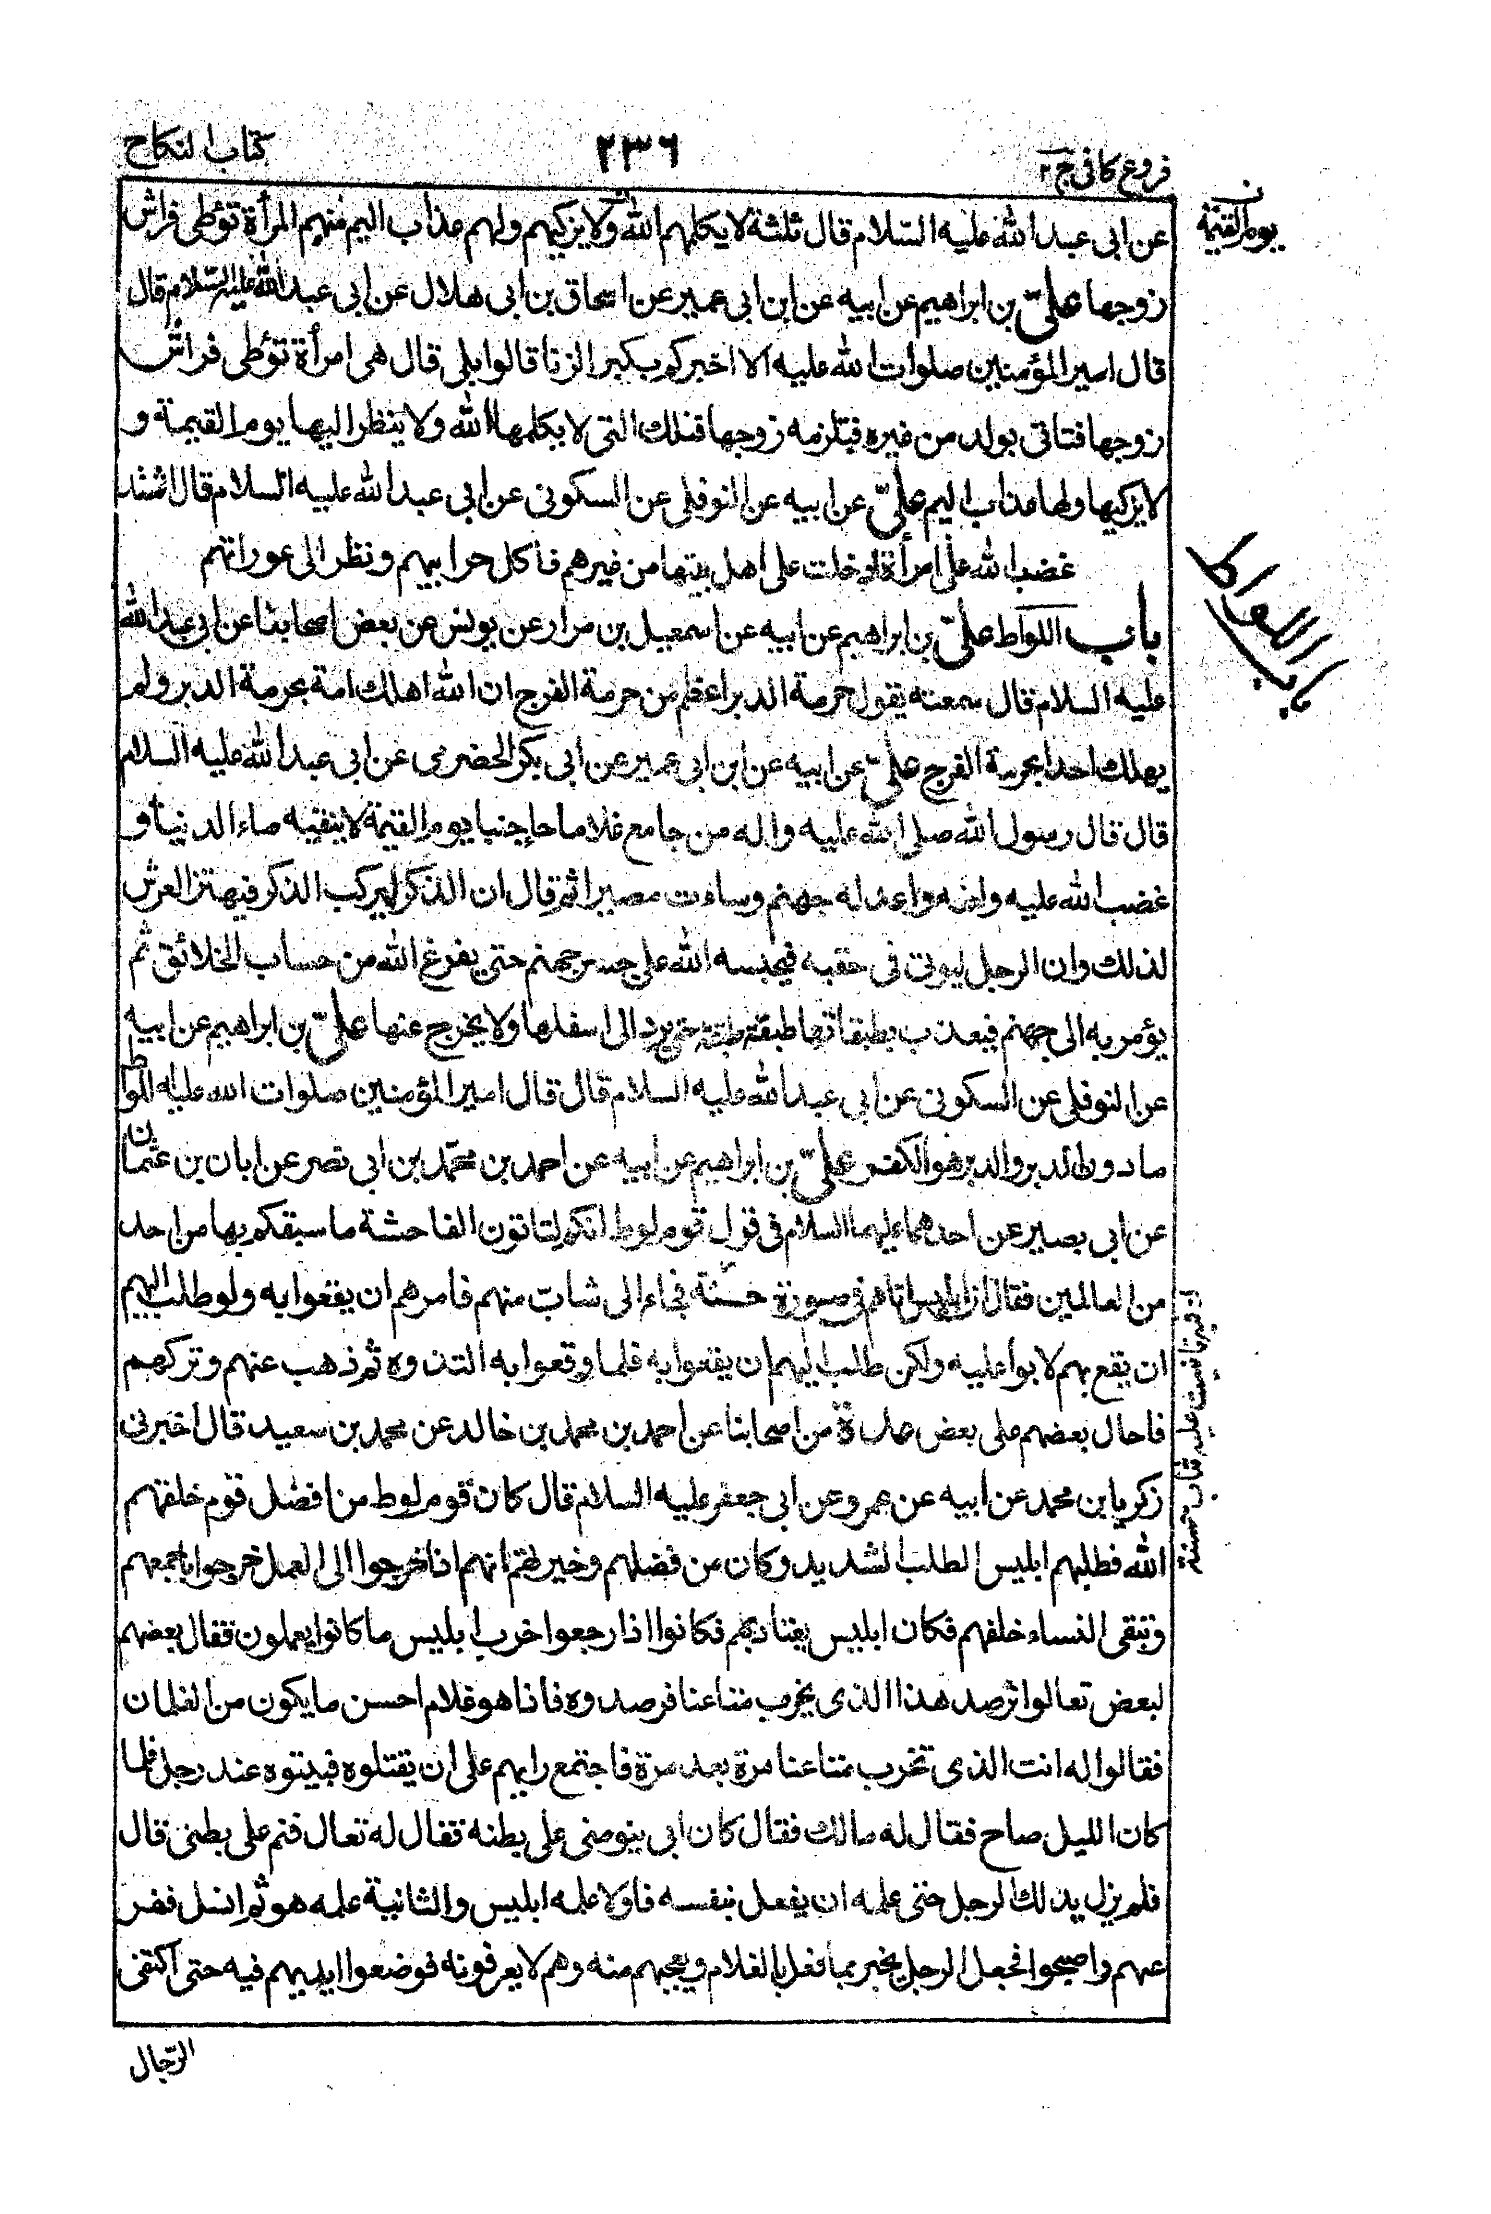 فروع كافى ج ٢
٢٣٦
كتاب النكاح
يوم القيمة
عن ابى عبد الله عليه السلام قال ثلثة لا يكلمهم الله ولا يزكيهم ولهم عذاب اليم منهم المرأة توطى فراش
زوجها علىّ بن ابراهيم عن ابيه عن ابن ابى عمير عن اسحاق بن ابى هلال عن ابى عبد الله عليه السلام قال
قال امير المؤمنين صلوات الله عليه الا اخبركم بكبر الزنا قالوا بلى قال هى امرأة توطى فراش
زوجها فتاتى بولد من غيره فتلزمه زوجها فتلك التى لا يكلمها الله ولا ينظر اليها يوم القيمة و
لا يزكيها ولها عذاب اليم علىّ عن ابيه عن النوفلى عن السكونى عن ابى عبد الله عليه السلام قال اشتد
غضب الله على امرأة ادخلت على اهل بيتها من غيرهم فاكل حرايبهم ونظر الى عوراتهم
باب اللواط
باب اللواط علىّ بن ابراهيم عن ابيه عن اسمعيل بن مرار عن يونس عن بعض اصحابنا عن ابى عبد الله
عليه السلام قال سمعته يقول حرمة الدبر اعظم من حرمة الفرج ان الله اهلك امة بحرمة الدبر ولم
يهلك احدا بحرمة الفرج علىّ عن ابيه عن ابن ابى عمير عن ابى بكر الحضرمى عن ابى عبد الله عليه السلام
قال قال رسول الله صلى الله عليه واله من جامع غلاما جاء جنبا يوم القيمة لا ينقيه ماء الدنيا و
غضب الله عليه ولعنه واعد له جهنم وساءت مصيرا ثم قال ان الذكر ليركب الذكر فيهتز العرش
لذلك وان الرجل ليوتى فى حقبه فيحبسه الله على جسر جهنم حتى يفرغ الله من حساب الخلائق ثم
يؤمر به الى جهنم فيعذب بطبقاتها طبقة طبقة حتى يرد الى اسفلها ولا يخرج عنها علىّ بن ابراهيم عن ابيه
عن النوفلى عن السكونى عن ابى عبد الله عليه السلام قال قال امير المؤمنين صلوات الله عليه اللواط
ما دون الدبر والدبر هو الكفر علىّ بن ابراهيم عن ابيه عن احمد بن محمّد بن ابى نصر عن ابان بن عثمان
عن ابى بصير عن احدهما عليهما السلام فى قول قوم لوط انكم لتاتون الفاحشة ما سبقكم بها من احد
من العالمين فقال ان ابليس اتاهم فى صورة حسنة فجاء الى شاب منهم فامرهم ان يقعوا به ولو طلب اليهم
ان يقع بهم لابوا عليه ولكن طلب اليهم ان يقعوا به فلما وقعوا به التذوه ثم ذهب عنهم وتركهم
فاحال بعضهم على بعض عدة من اصحابنا عن احمد بن محمد بن خالد عن محمد بن سعيد قال اخبرنى
زكريا بن محمد عن ابيه عن عمرو عن ابى جعفر عليه السلام قال كان قوم لوط من افضل قوم خلقهم
الله فطلبهم ابليس الطلب الشديد وكان من فضلهم وخيرتهم انهم اذا خرجوا الى العمل خرجوا باجمعهم
وتبقى النساء خلفهم فكان ابليس يعتادهم فكانوا اذا رجعوا خرب ابليس ما كانوا يعملون فقال بعضهم
لبعض تعالوا نرصد هذا الذى يخرب متاعنا فرصدوه فاذا هو غلام احسن ما يكون من الغلمان
فقالوا له انت الذى تخرب متاعنا مرة بعد مرة فاجتمع رايهم على ان يقتلوه فبيتوه عند رجل فلما
كان الليل صاح فقال له مالك فقال كان ابى ينومنى على بطنه فقال له تعال فنم على بطنى قال
فلم يزل يدلك الرجل حتى علمه ان يفعل بنفسه فاولا علمه ابليس والثانية علمه هو ثم انسل ففر
عنهم واصبحوا فجعل الرجل يخبر بما فعل بالغلام ويعجبهم منه وهم لا يعرفونه فوضعوا ايديهم فيه حتى اكتفى
الرّجال